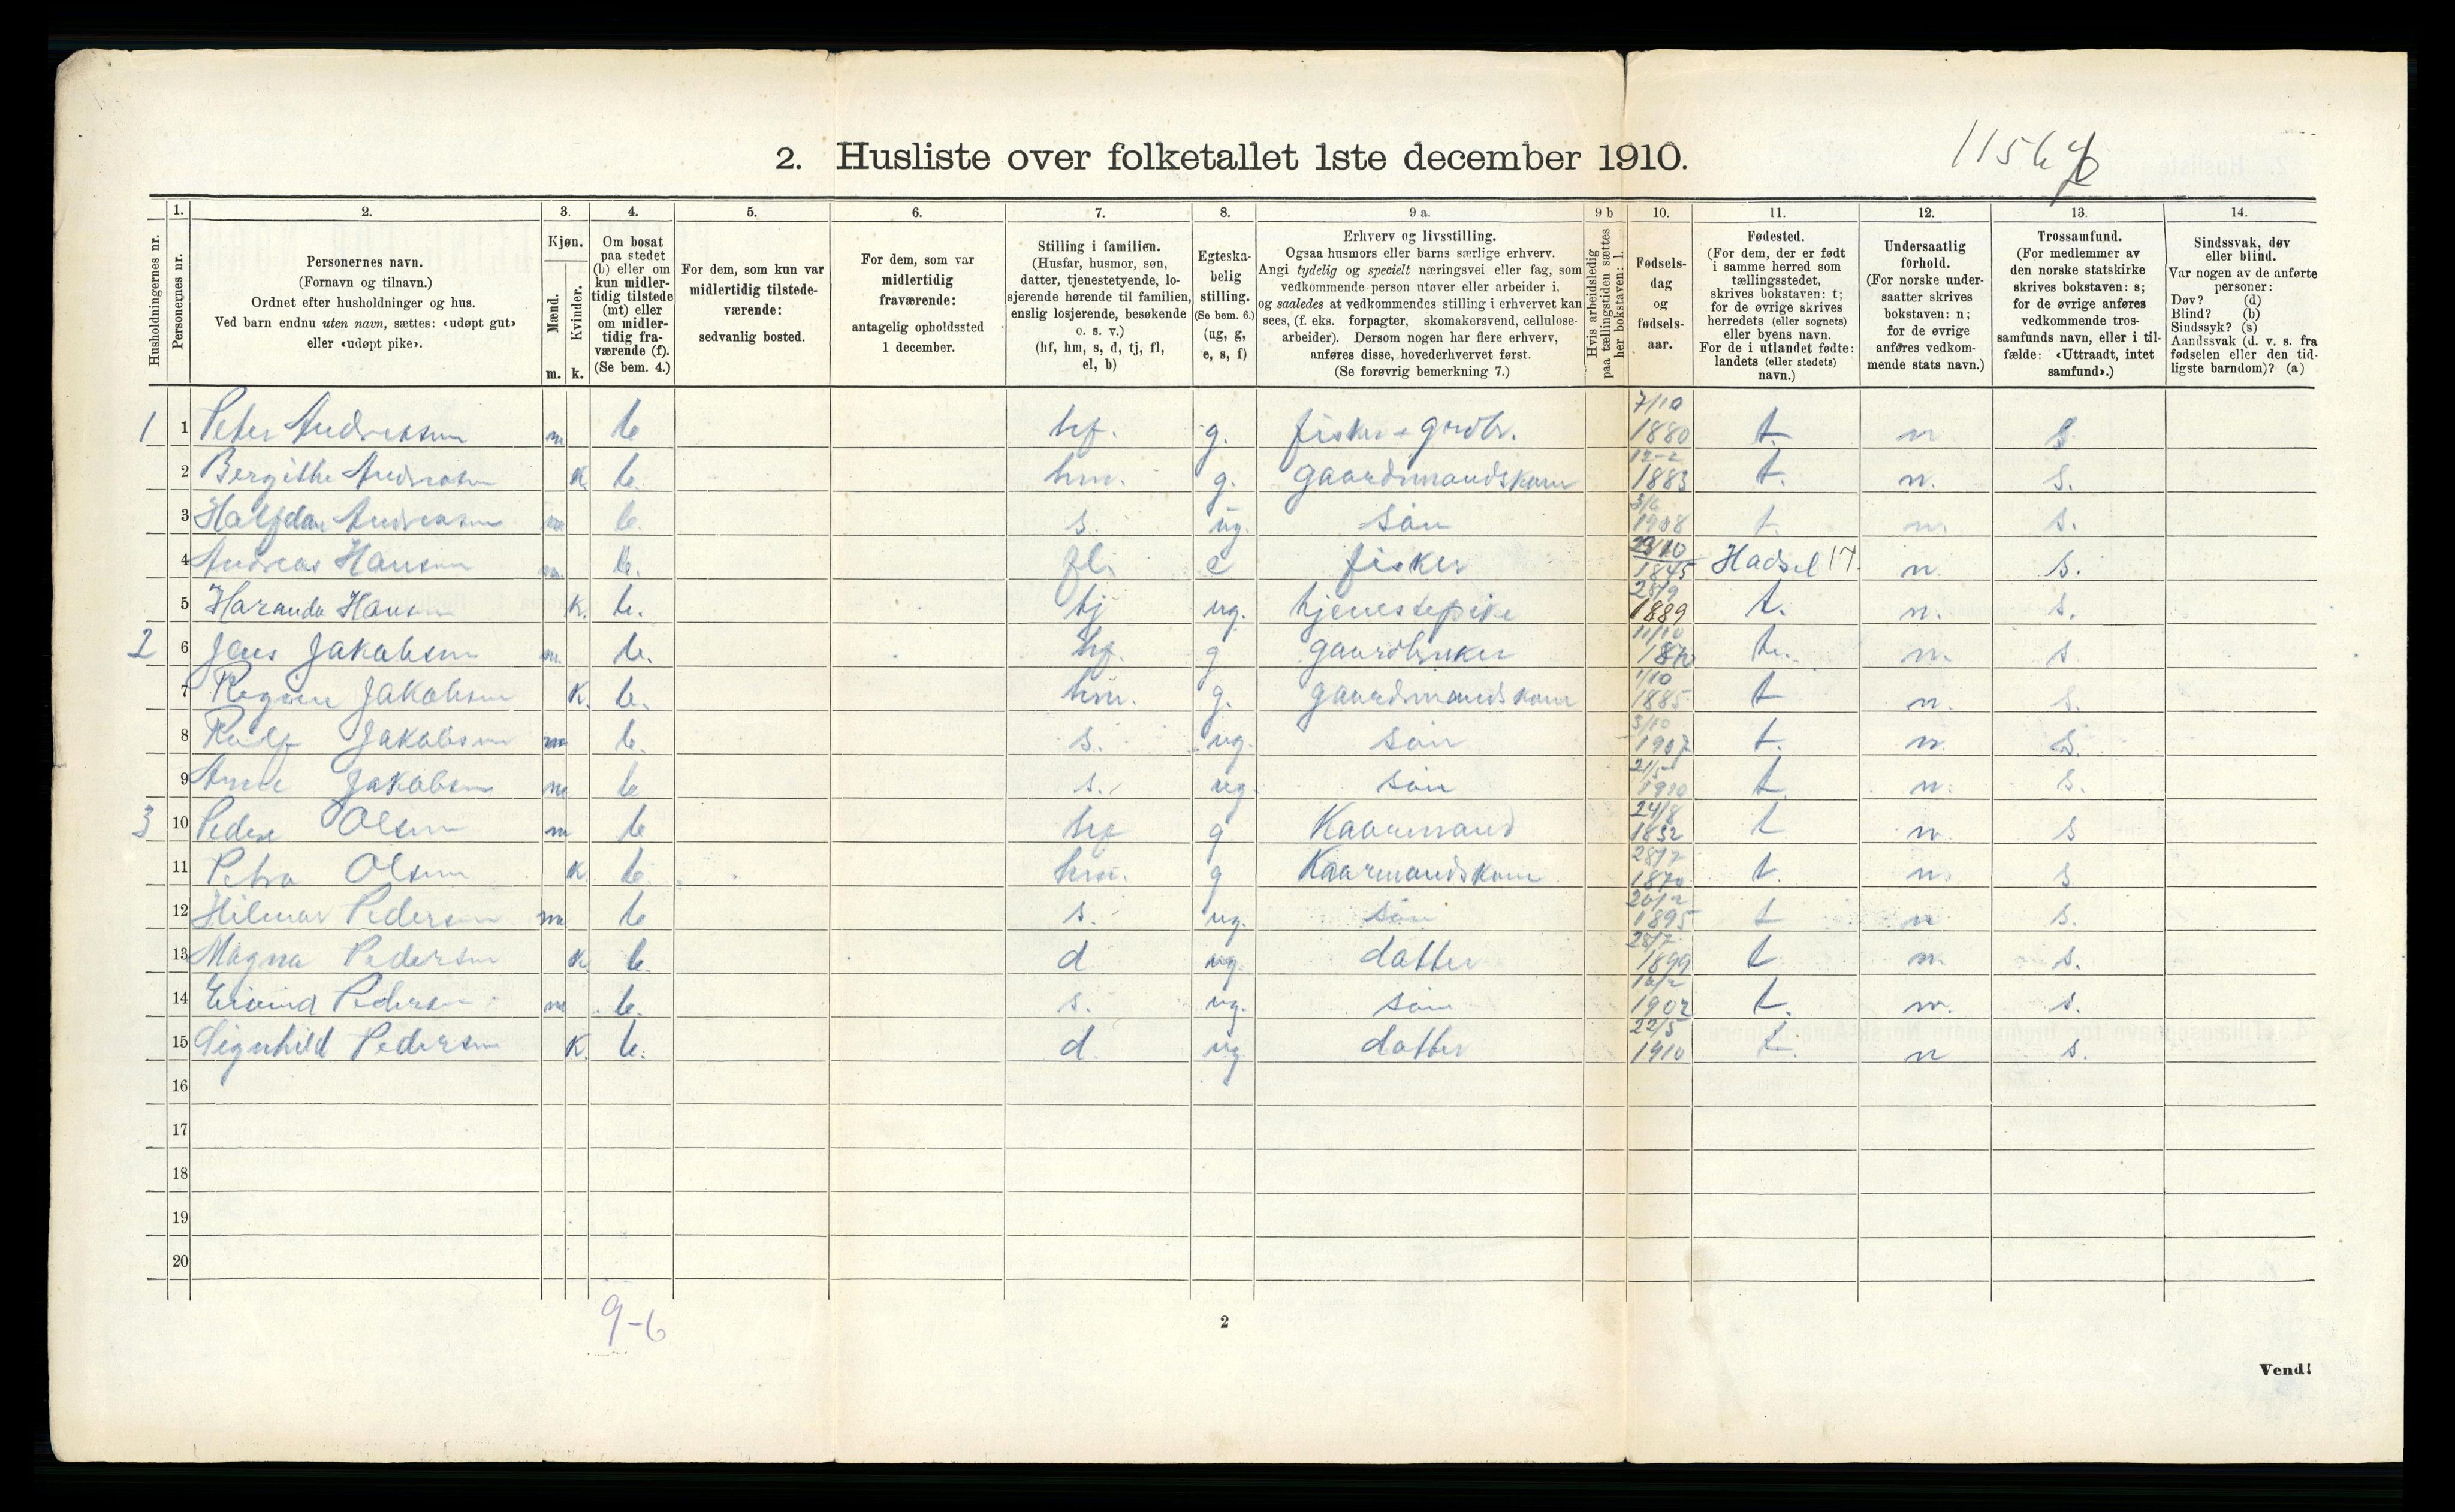 2. Husliste over folketallet 1ste december 1910.
1156
Husholdningernes nr.
1.
Personernes nr.
2.
Personernes navn.
(Fornavn og tilnavn.)
Ordnet efter husholdninger og hus.
Ved barn endnu uten navn, sættes: «udøpt gut»
eller «udøpt pike».
3.
Kjøn.
Mænd.
Kvinder.
m. k.
4.
Om bosat
paa stedet
(b) eller om
kun midler-
tidig tilstede
(mt) eller
om midler-
tidig fra-
værende (f).
(Se bem. 4.)
5.
For dem, som kun var
midlertidig tilstede-
værende:
sedvanlig bosted.
6.
For dem, som var
midlertidig
fraværende:
antagelig opholdssted
1 december.
7.
Stilling i familien.
(Husfar, husmor, søn,
datter, tjenestetyende, lo-
sjerende hørende til familien,
enslig losjerende, besøkende
o. s. v.)
(hf, hm, s, d, tj, fl,
el, b)
8.
Egteska-
belig
stilling.
(Se bem. 6.)
(ug, g,
e, s, f)
9 a.
Erhverv og livsstilling.
Ogsaa husmors eller barns særlige erhverv.
Angi tydelig og specielt næringsvei eller fag, som
vedkommende person utøver eller arbeider i,
og saaledes at vedkommendes stilling i erhvervet kan
sees, (f. eks. forpagter, skomakersvend, cellulose-
arbeider). Dersom nogen har flere erhverv,
anføres disse, hovederhvervet først.
(Se forøvrig bemerkning 7.)
9 b
Hvis arbeidsledig
paa tællingstiden sættes
her bokstaven: l.
10.
Fødsels-
dag
og
fødsels-
aar.
11.
Fødested.
(For dem, der er født
i samme herred som
tællingsstedet,
skrives bokstaven: t;
for de øvrige skrives
herredets (eller sognets)
eller byens navn.
For de i utlandet fødte:
landets (eller stedets)
navn.)
12.
Undersaatlig
forhold.
(For norske under-
saatter skrives
bokstaven: n;
for de øvrige
anføres vedkom-
mende stats navn.)
13.
Trossamfund.
(For medlemmer av
den norske statskirke
skrives bokstaven: s;
for de øvrige anføres
vedkommende tros-
samfunds navn, eller i til-
fælde: «Uttraadt, intet
samfund».)
14.
Sindssvak, døv
eller blind.
Var nogen av de anførte
personer:
Døv? (d)
Blind? (b)
Sindssyk? (s)
Aandssvak (d. v. s. fra
fødselen eller den tid-
ligste barndom)? (a)
1 1 Peter Andreassen m b hf. g. fisker + grdbr. 7/10 1880 t. n s.
2 Bergithe Andreasen K. b. hm. g. gaardmandskone 12-2 1883 t. n. s.
3 Halfdan Andreasen m b. s. ug. søn 3/6 1908 t. n. s.
4 Andreas Hansen m. b. fl. e fisker 1845 Hadsel 17. n. s.
5 Hansen K. b. tj ug. tjenestepike 28/9 1889 t. n. s.
2 6 Jens Jakobsen m. b. hf. g gaardbruker 11/10 t. n. s
7 Regine Jakobsen K. b. hm. g. gaardmandskone 1/10 1885 t n. s.
8 Rolf Jakobsen m b. s. ug. søn 3/10 1907 t. n. s.
9 Arne Jakobsen m b s. ug. søn 21/5 1910 t. n. s.
3 10 Peder Olsen m b hf g Kaarmand 24/8 t n. s
11 Petra Olsen K. b. hm. g Kaarmandskone 28/7 1870 t. n. s
12 Hilmar Pedersen m b s. ug. søn 20/2 1895 t n s.
13 Magna Pedersen K b. d ug datter 1899 t n. s.
14 Eivind Pedersen m b. s. ug. søn 16/2 1902 t. n. s.
15 Signhild Pedersen K. b. d. ug datter 22/5 1910 t. n s.
16
17
18
19
20
9-6
2
Vend!